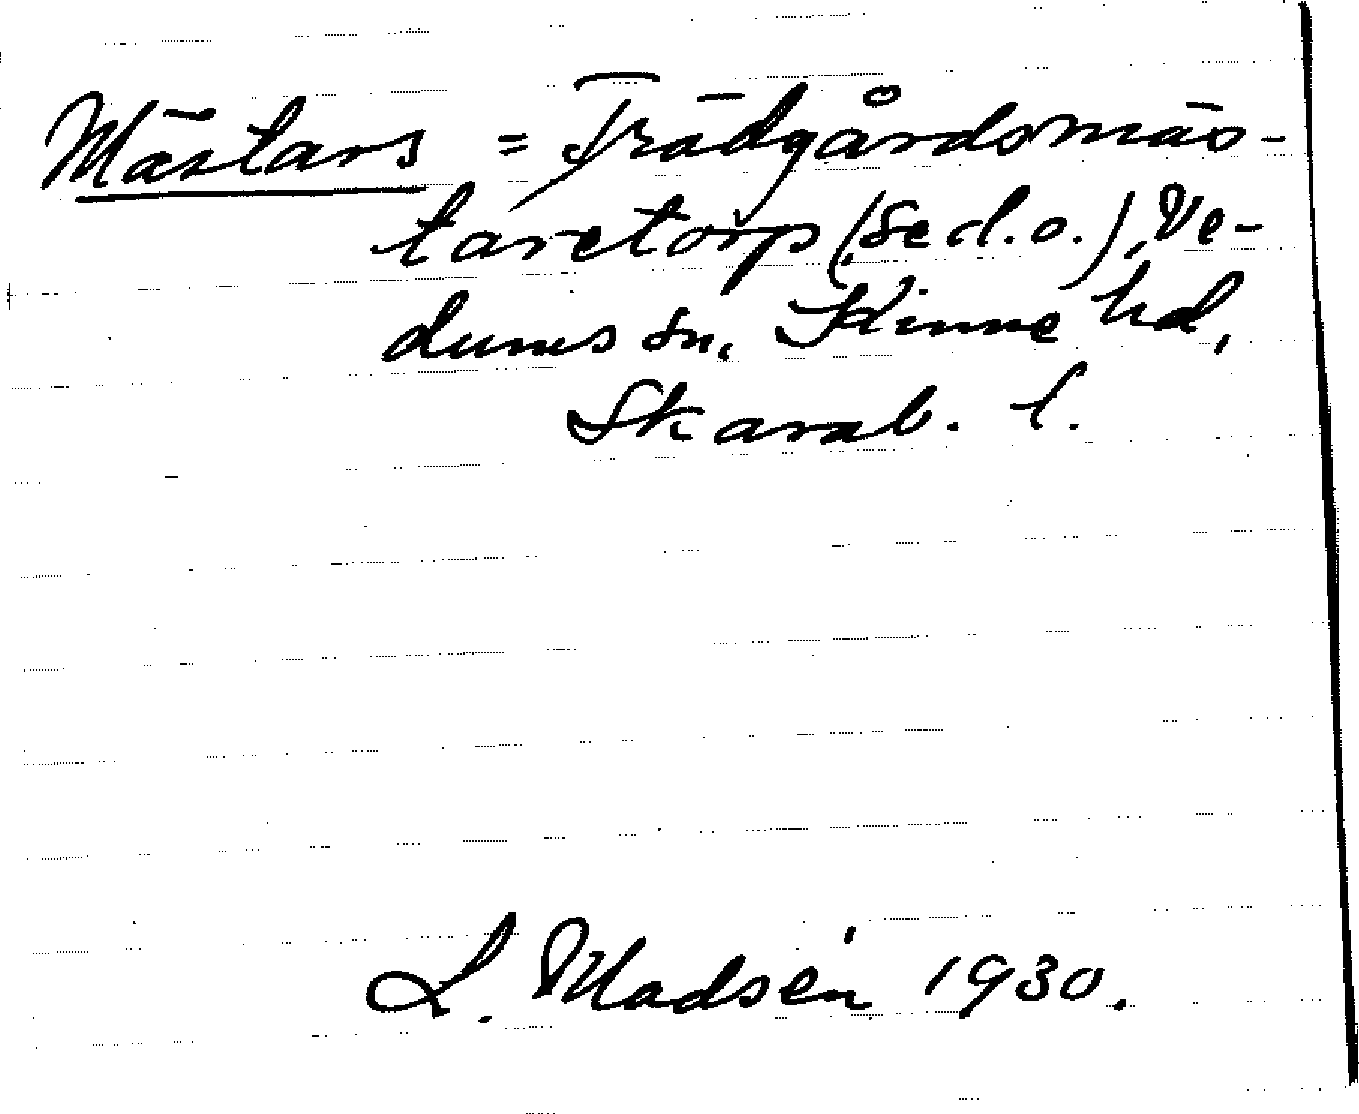 Mästars = Trädgårdsmäs-
taretorp (se d.o.), Ve-
dums sn, Kinne hd,
Skarab. l.
L. Madsén 1930.